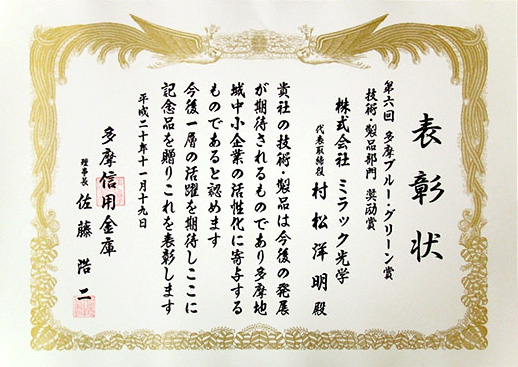 表彰状
第六回 多摩ブルー・グリーン賞
技術・製品部門 奨励賞
株式会社 ミラック光学
代表取締役 村松洋明 殿
貴社の技術・製品は今後の発展
が期待されるものであり多摩地
域中小企業の活性化に寄与する
ものであると認めます
今後一層の活躍を期待しここに
記念品を贈りこれを表彰します
平成二十年十一月十九日
多摩信用金庫
理事長 佐藤浩二